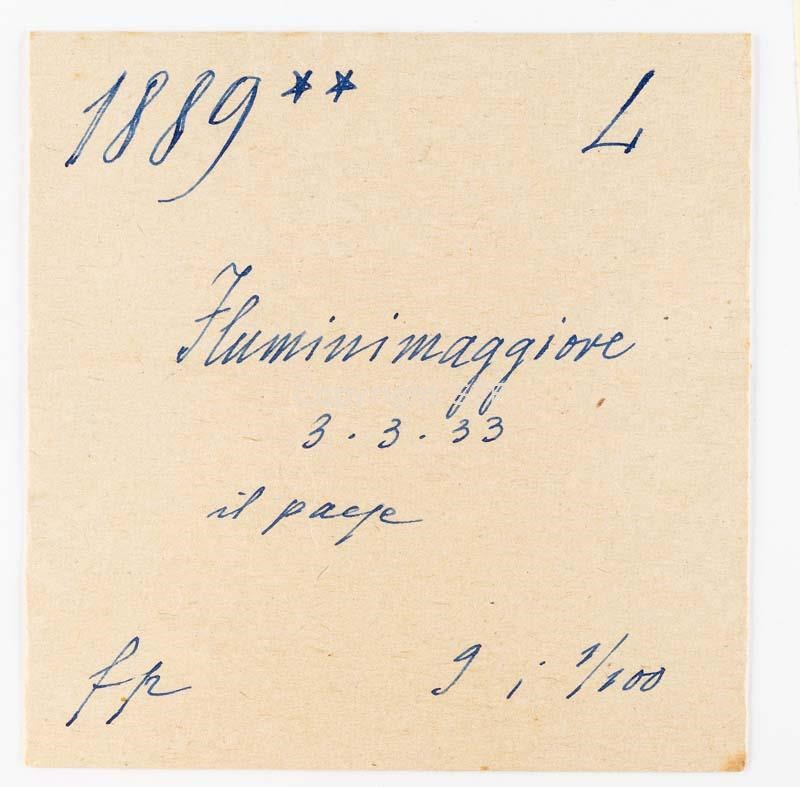 1889** L
Fluminimaggiore
3.3.33
il paese
fp 9 i 1/100